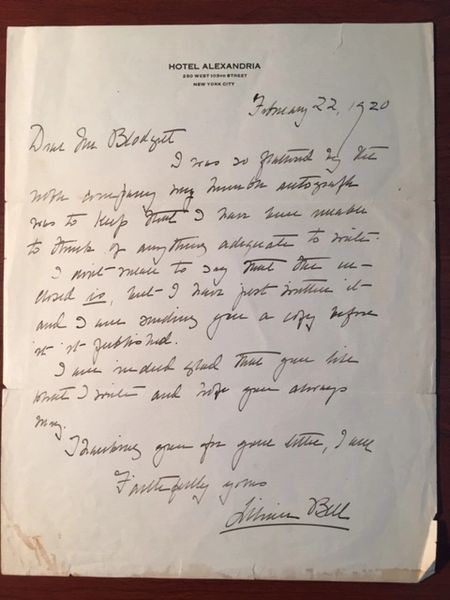 HOTEL ALEXANDRIA
250 WEST 103RD STREET
NEW YORK CITY
February 22, 1920
Dear Mr Blodgett
I was so flattered by the
noble company my humble autograph
was to keep that I have been unable
to think of anything adequate to write.
I don't mean to say that the en-
closed is, but I have just written it
and I am sending you a copy before
it is published.
I am indeed glad that you like
what I write and hope you always
may.
Thanking you for your letter, I am
Faithfully yours
Lilian Bell